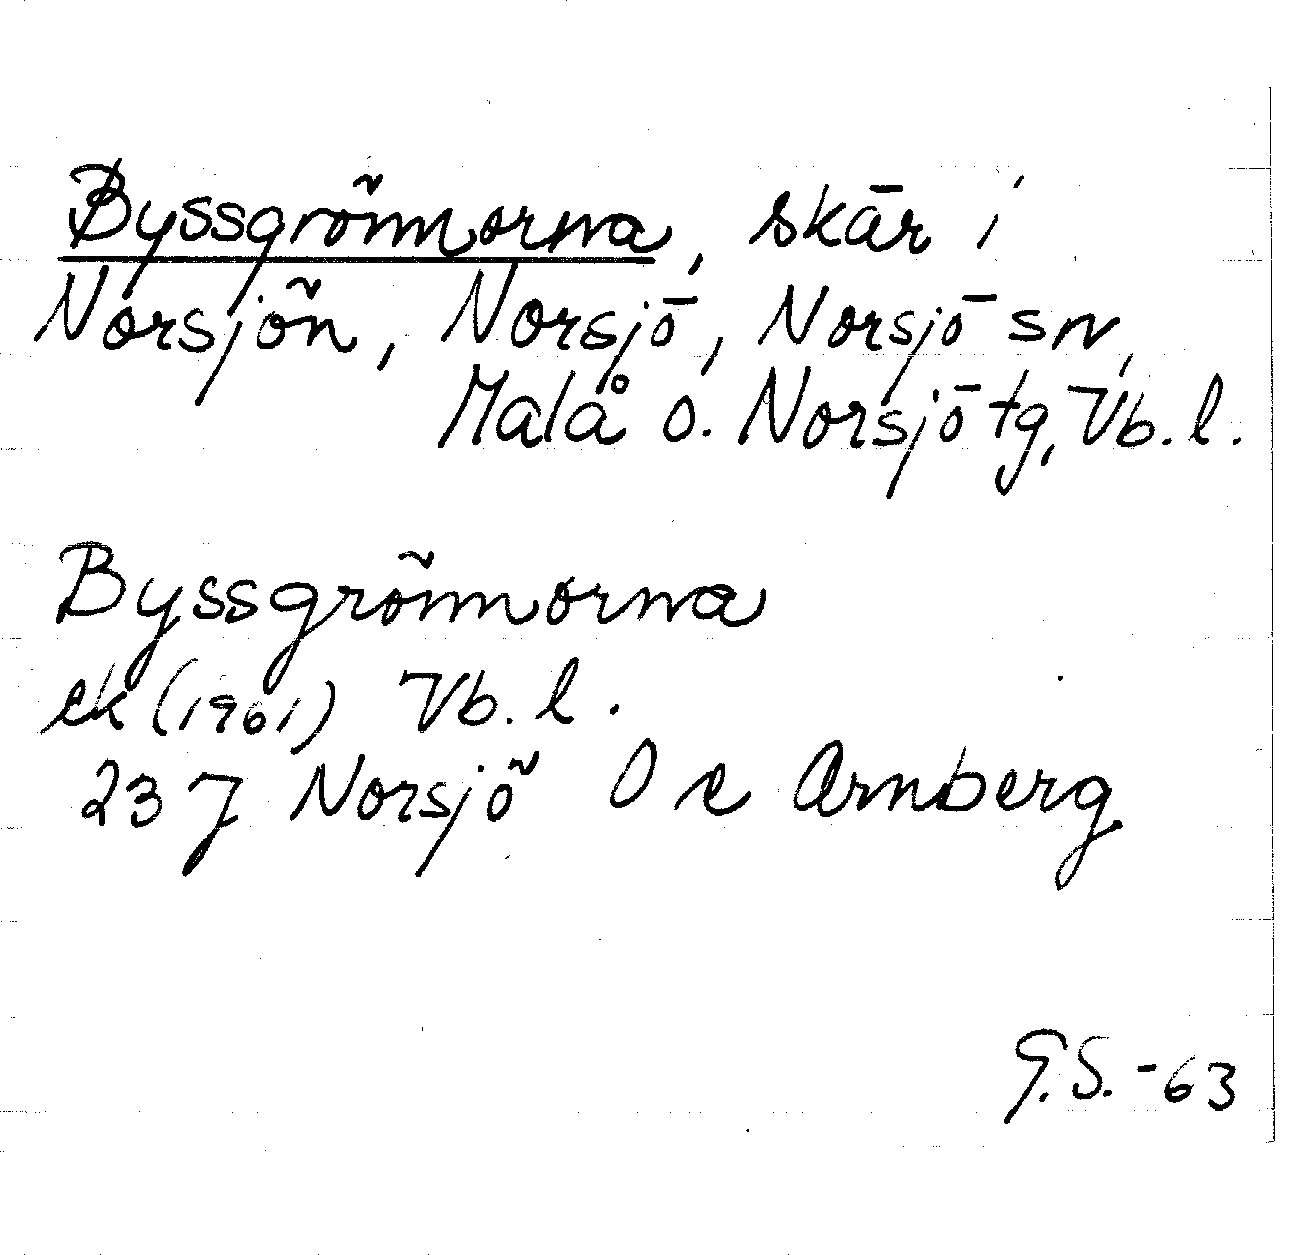 Byssgrönnorna, skär i
Norsjön, Norsjö, Norsjö sn,
Malå o. Norsjö tg, Vb. l.
Byssgrönnorna
ek (1961) Vb. l.
23 J Norsjö O e Arnberg
G.S.-63